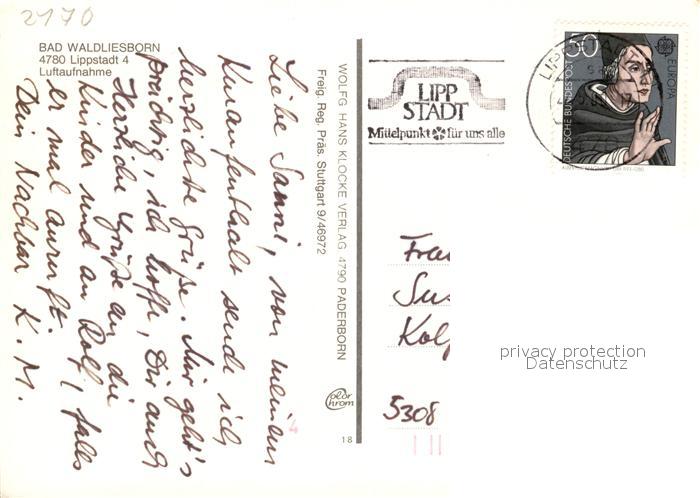 2170
BAD WALDLIESBORN
4780 Lippstadt 4
Luftaufnahme
Liebe Sanni, von meinem
Kuraufenthalt sende ich
herzlichste Grüße. Mir geht's
prächtig, ich hoffe, Dir auch
Herzliche Grüße an die
Kinder und an Rolf, falls
er mal anruft.
Dein Nachbar K. M.
WOLFG. HANS KLOCKE VERLAG 4790 PADERBORN
Freig. Reg. Präs. Stuttgart 9/46972
Color
chrom
18
LIPP
STADT
Mittelpunkt für uns alle
LIPP
50
DEUTSCHE BUNDESPOST
EUROPA
CEPT
Frau
Sus
Kolf
5308
privacy protection
Datenschutz